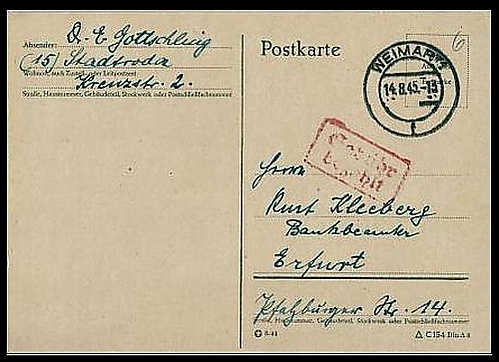 Absender: Dr. E. Gottschling
(15) Stadtroda
Wohnort, auch Zustell- oder Leitpostamt
Kreuzstr. 2.
Straße, Hausnummer, Gebäudeteil, Stockwerk oder Postschließfachnummer
Postkarte
6
WEIMAR
14.8.45.-18
f
Gebühr
bezahlt
Herrn
Kurt Kleeberg
Bankbeamter
Erfurt
Pfalzburger Str. 14.
Straße, Hausnummer, Gebäudeteil, Stockwerk oder Postschließfachnummer
8-44
C 154 Din A 6